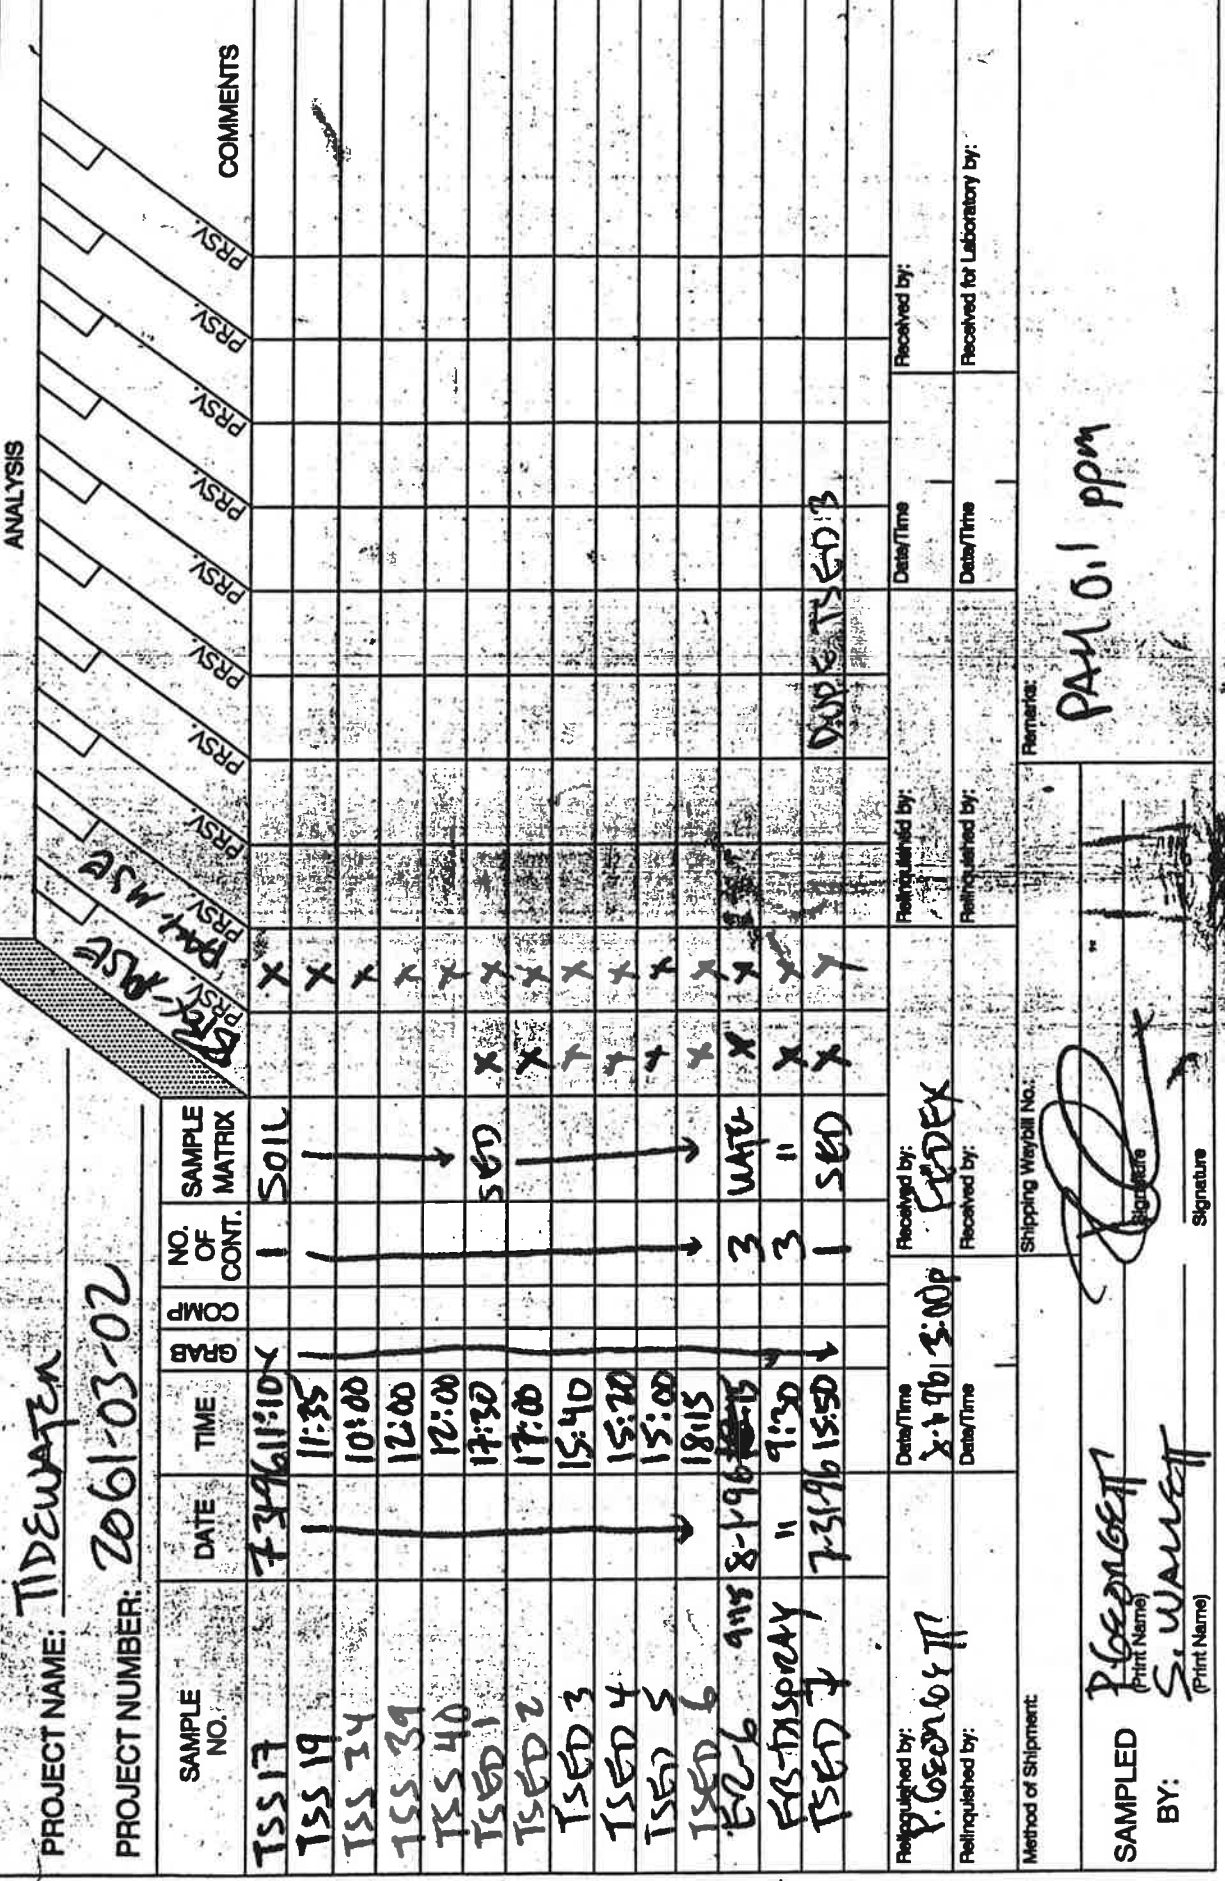 PROJECT NAME: TIDEWATER
PROJECT NUMBER: 2061-03-02
ANALYSIS
SAMPLE NO. DATE TIME GRAB COMP NO. OF CONT. SAMPLE MATRIX PRSV. PRSV. PAH-MSE PRSV. PRSV. PRSV. PRSV. PRSV. PRSV. PRSV. PRSV. COMMENTS
TSS 17 7-31-96 11:10 X 1 SOIL X
TSS 19 11:35 X
TSS 34 10:00 X
TSS 39 12:00 X
TSS 40 12:00 X
TSED 1 17:30 SED X X
TSED 2 17:00 X X
TSED 3 15:40 X X
TSED 4 15:20 X X
TSED 5 15:00 X X
TSED 6 18:15 X X
9:15 8-1-96 3 X X
9:30 3 " X X
TSED 7 7-31-96 15:50 1 SED X X DUPE TSED 3
Relinquished by: Date/Time Received by: Relinquished by: Date/Time Received by:
3:00p FEDEX
Relinquished by: Date/Time Received by: Relinquished by: Date/Time Received for Laboratory by:
Method of Shipment: Shipping Waybill No.: Remarks:
PAH 0.1 ppm
SAMPLED BY:
(Print Name) Signature
(Print Name) Signature